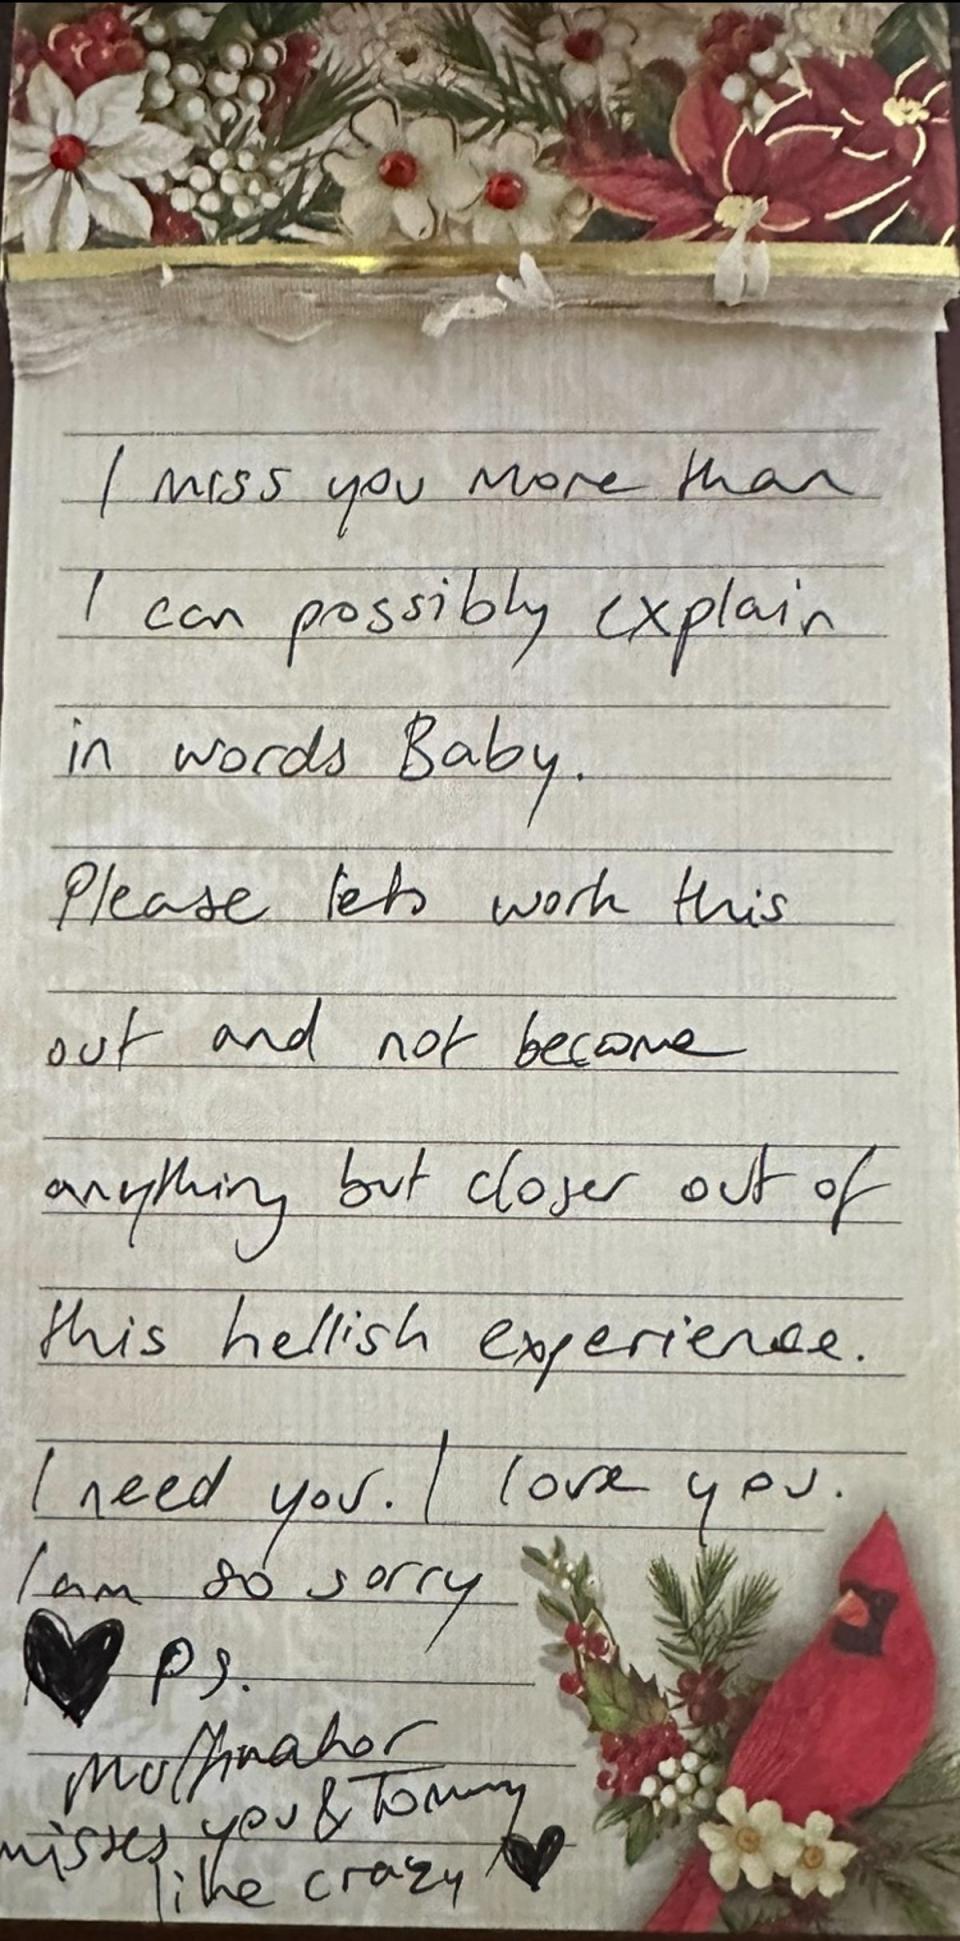 I miss you more than
I can possibly explain
in words Baby.
Please lets work this
out and not become
anything but closer out of
this hellish experience.
I need you. I love you.
I am so sorry
ps.
misses you & Tommy
like crazy